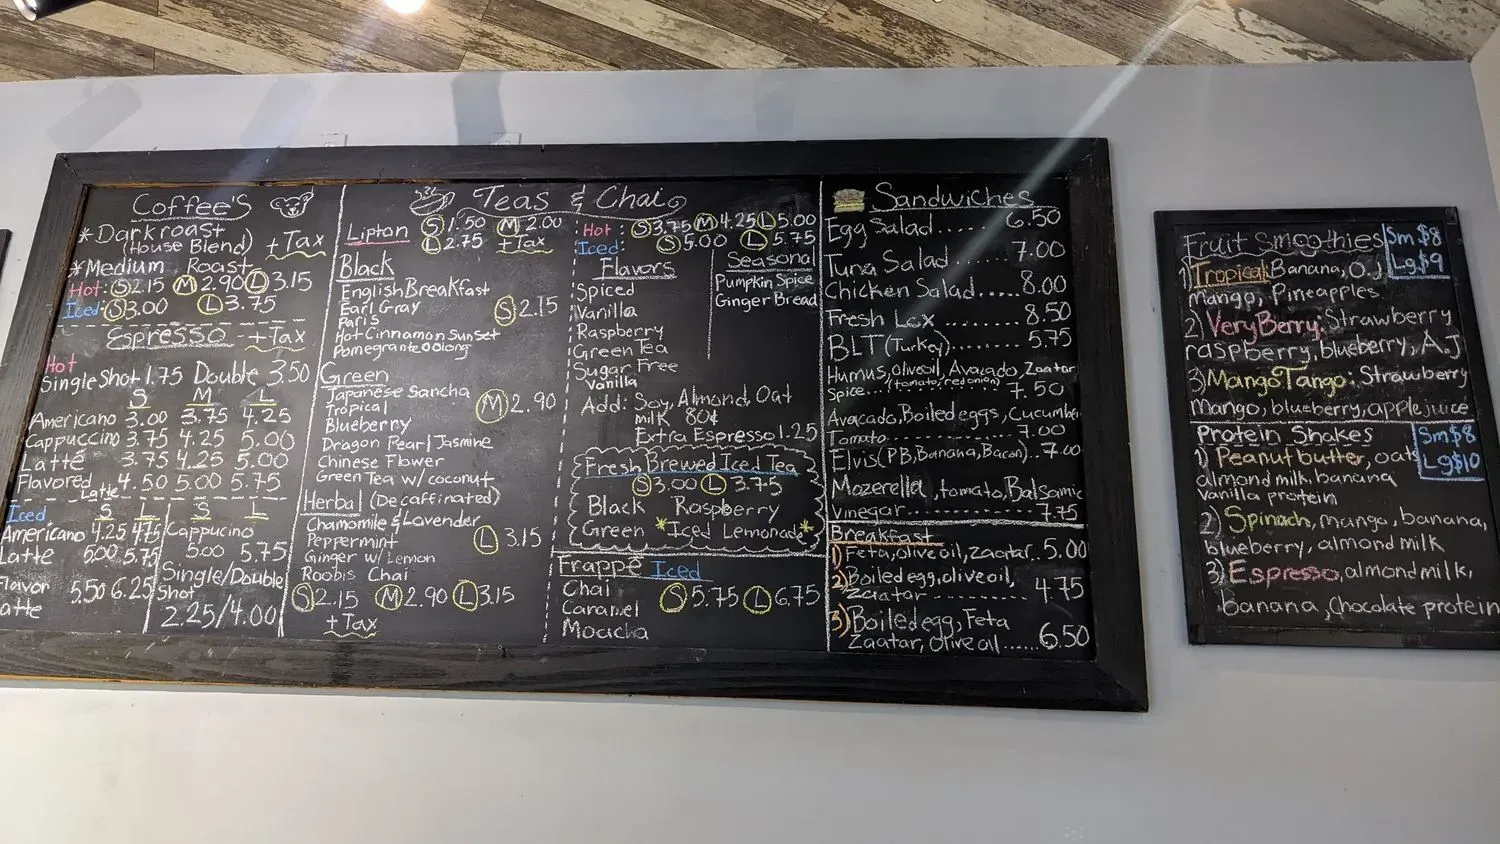 Coffee'S
*Dark roast
(House Blend) +Tax
*Medium Roast
Hot: S 2.15 M 2.90 L 3.15
Iced: S 3.00 L 3.75
Espresso +Tax
Hot
Single Shot 1.75 Double 3.50
S M L
Americano 3.00 3.75 4.25
Cappuccino 3.75 4.25 5.00
Latte 3.75 4.25 5.00
Flavored Latte 4.50 5.00 5.75
Iced S L
Americano 4.25 4.75
Latte 5.00 5.75
Flavor
atte 5.50 6.25
S L
Cappucino
5.00 5.75
Single/Double
Shot
2.25/4.00
Teas & Chai
Lipton S 1.50 M 2.00
L 2.75 +Tax
Black
English Breakfast
Earl Gray
Paris
S 2.15
Hot Cinnamon Sunset
Pomegrante Oolong
Green
Japanese Sancha
Tropical
Blueberry
M 2.90
Dragon Pearl Jasmine
Chinese Flower
Green Tea w/ coconut
Herbal (Decaffinated)
Chamomile & Lavender
Peppermint
L 3.15
Ginger w/ Lemon
Roobis Chai
S 2.15 M 2.90 L 3.15
+Tax
Hot: S 3.75 M 4.25 L 5.00
Iced: S 5.00 L 5.75
Flavors
Spiced
Vanilla
Raspberry
Green Tea
Sugar Free
Vanilla
Seasonal
Pumpkin Spice
Ginger Bread
Add: Soy, Almond, Oat
milk 80¢
Extra Espresso 1.25
Fresh Brewed Iced Tea
S 3.00 L 3.75
Black Raspberry
Green *Iced Lemonade*
Frappé Iced
Chai
Caramel
Moacha
S 5.75 L 6.75
Sandwiches
Egg Salad..... 6.50
Tuna Salad..... 7.00
Chicken Salad..... 8.00
Fresh Lox....... 8.50
BLT (Turkey).... 5.75
Humus, Olive oil, Avacado, Zaatar
Spice...(tomato, red onion) 7.50
Avacado, Boiled eggs, Cucumber
Tomato............ 7.00
Elvis (PB, Banana, Bacon).. 7.00
Mozerella, tomato, Balsamic
vinegar............ 7.75
Breakfast
1) Feta, olive oil, zaatar.. 5.00
2) Boiled egg, olive oil,
Zaatar............ 4.75
3) Boiled egg, Feta
Zaatar, Olive oil...... 6.50
Fruit Smoothies Sm $8
Lg. $9
1) Tropical Banana, O.J
Mango, Pineapples
2) Very Berry: Strawberry
raspberry, blueberry, A.J
3) Mango Tango: Strawberry
Mango, blueberry, apple juice
Protein Shakes Sm $8
Lg $10
1) Peanut butter, oats
almond milk, banana
Vanilla protein
2) Spinach, mango, banana,
blueberry, almond milk
3) Espresso, almond milk,
banana, Chocolate protein